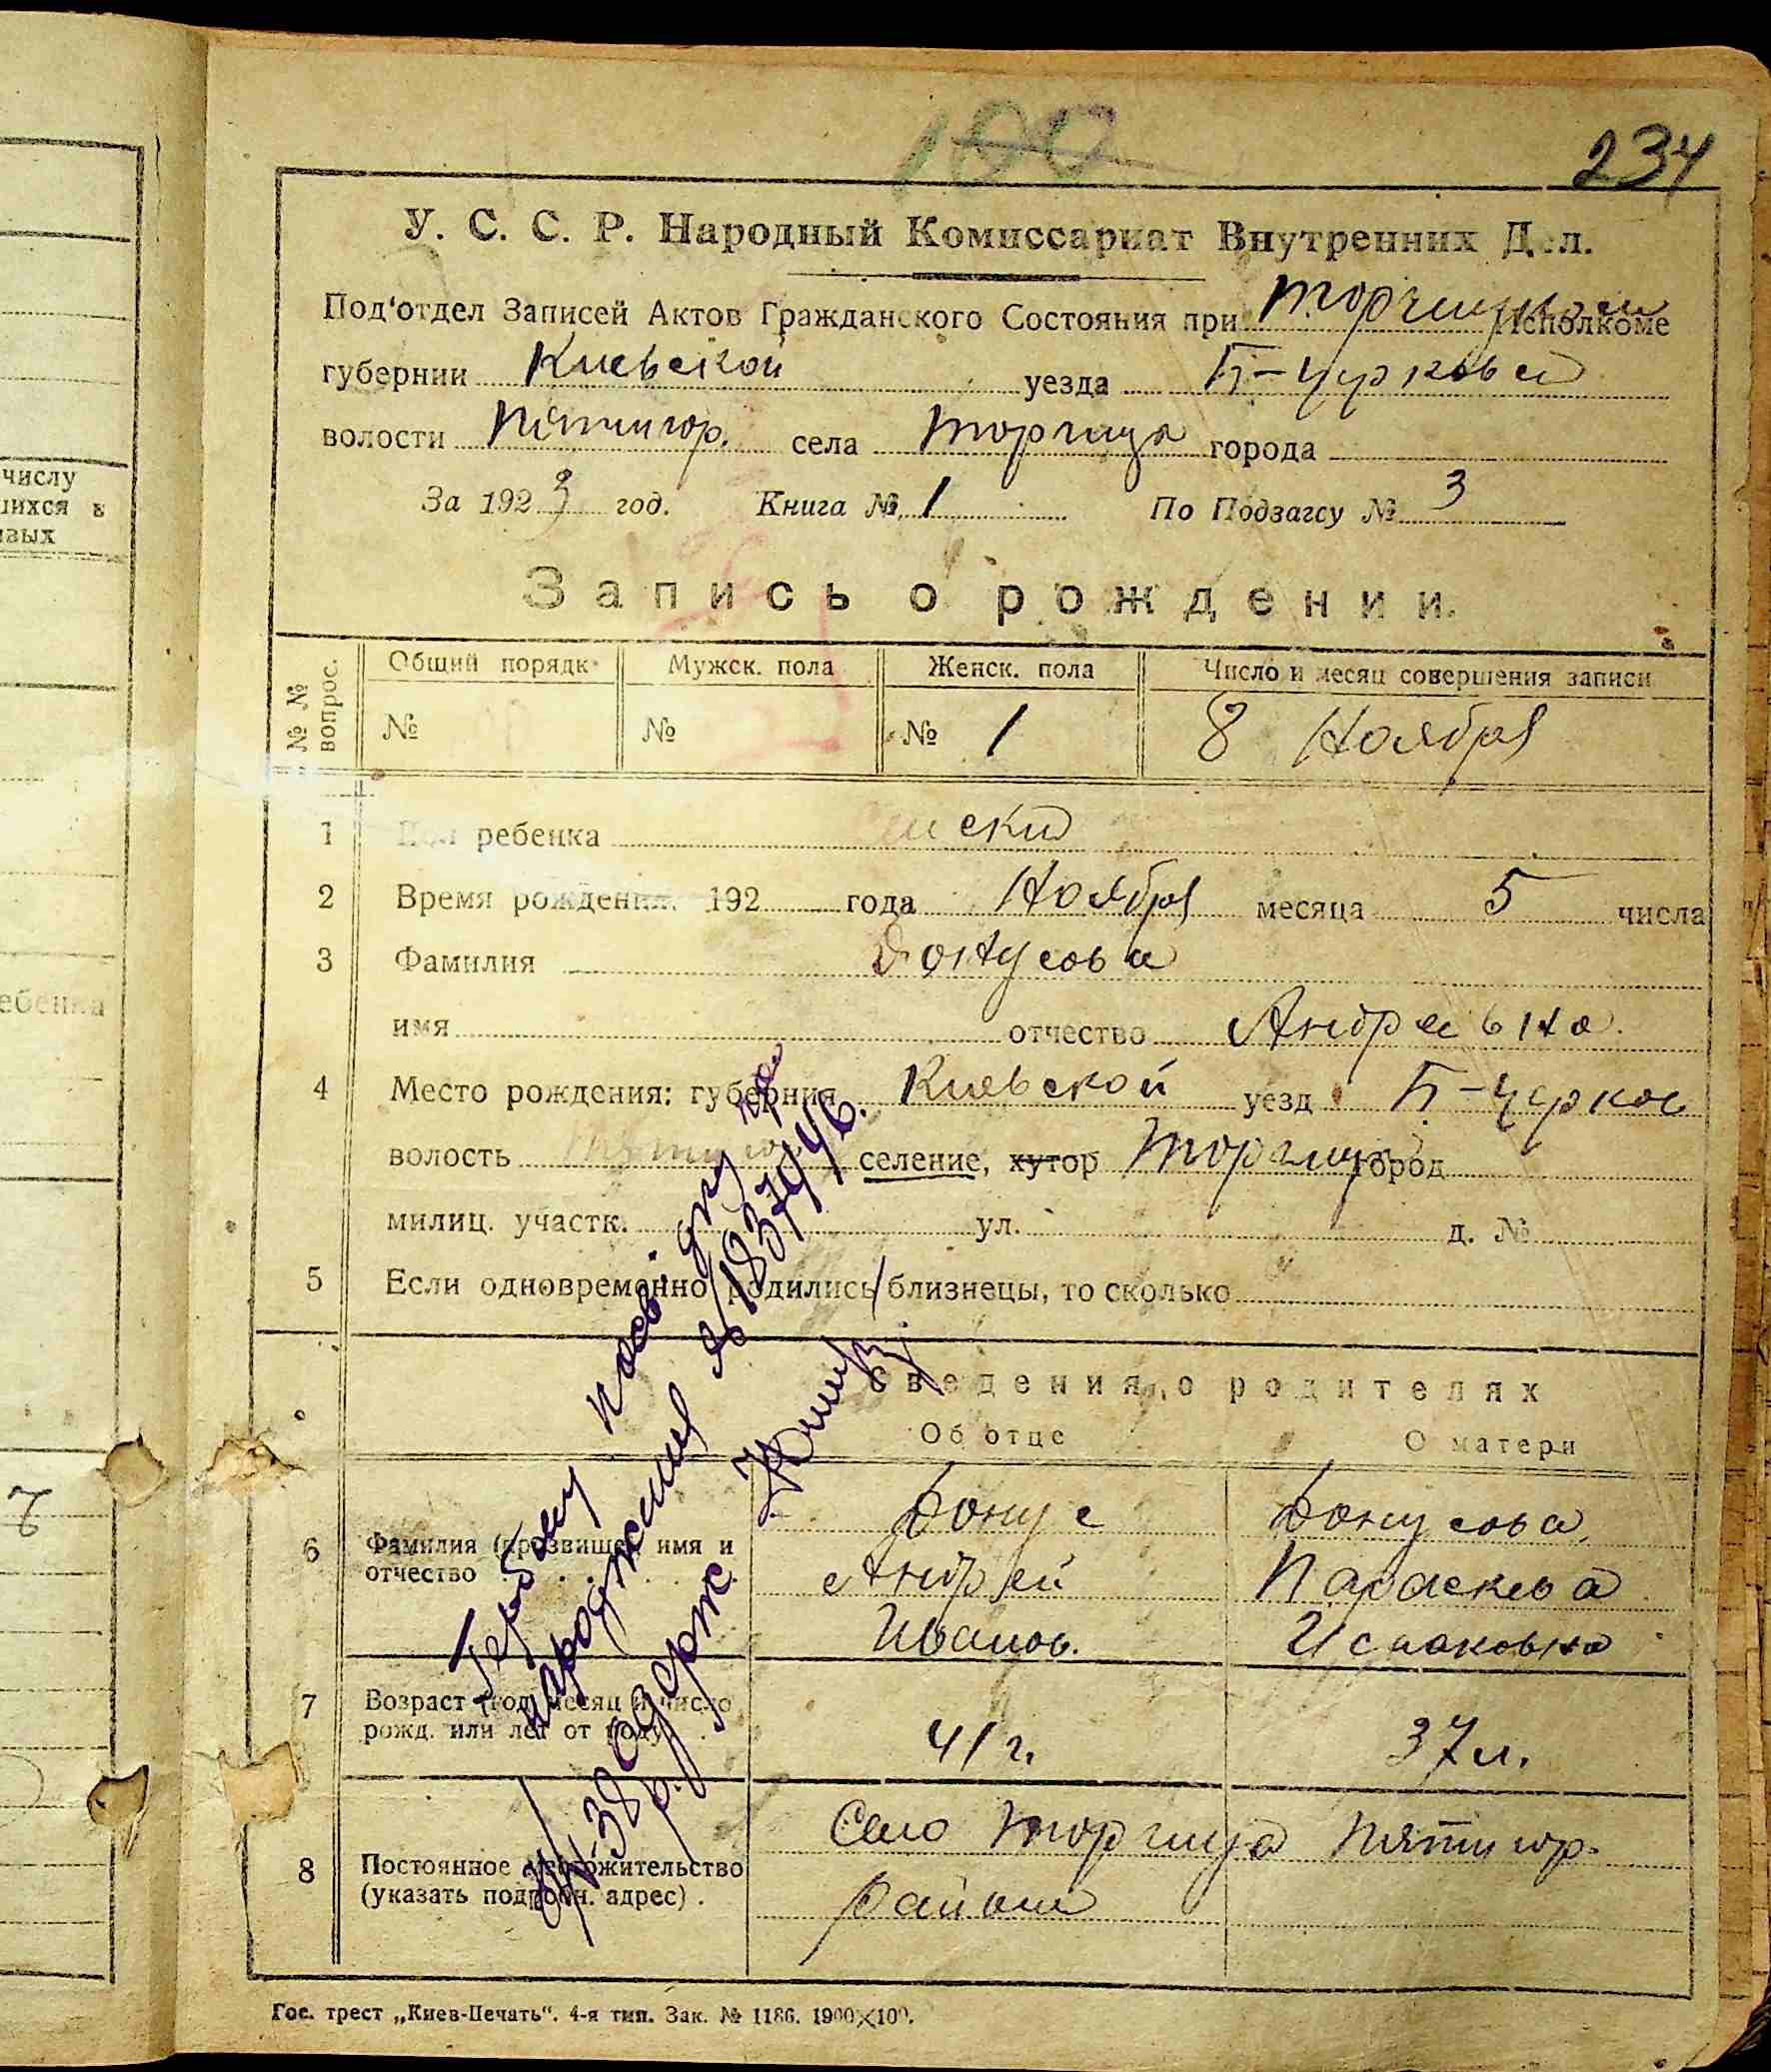 числу
шихся в
ивых
ебенка
190
234
У. С. С. Р. Народный Комиссариат Внутренних Дел.
Под'отдел Записей Актов Гражданского Состояния при Исполкоме
губернии Киевской уезда Б-Церковс
волости Пятигор. села Торчица города
За 1923 год. Книга № 1 По Подзагсу № 3
Запись о рождении.
№ № вопрос. Общий порядк. Мужск. пола Женск. пола Число и месяц совершения записи
№ № № 1 8 Ноября
1 Пол ребенка
2 Время рождения. 192 года Ноября месяца 5 числа
3 Фамилия Бонусова
имя отчество Андреевна
4 Место рождения: губерния Киевской уезд Б-Церков
волость Пятигор селение, хутор Торчица город
милиц. участк. ул. д. №
5 Если одновременно родились близнецы, то сколько
Сведения о родителях
Об отце О матери
6 Фамилия (прозвище) имя и отчество Бонус Бонусова
Андрей Параскева
Иванов. Исааковна
7 Возраст (год, месяц и число рожд. или лет от роду) 41 г. 37 л.
8 Постоянное местожительство (указать подробн. адрес) Село Торчица Пятигор.
района
Гос. трест „Киев-Печать“. 4-я тип. Зак. № 1186. 1900×100.